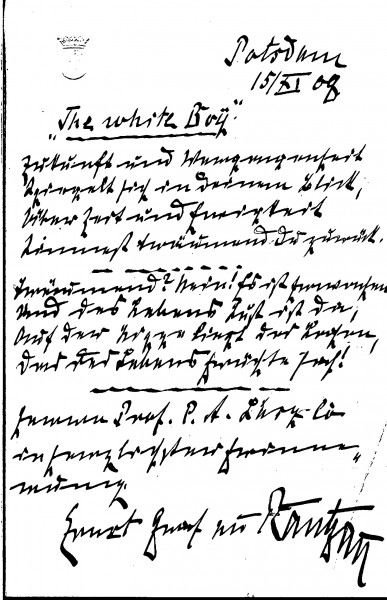 Potsdam
15/XI 08
„The white Boy“.
Zukunft und Vergangenheit
Spiegelt sich in deinem Blick,
Über Zeit und Ewigkeit
Sinnest träumend Du zurück.
Träumend? Nein! Es ist erwachen
Und des Lebens Lust ist da,
Auf der Lippe liegt das Lachen,
das des Lebens Früchte sah!
Herrn Prof. P. A.
in herzlichster Erinne-
rung.
Ernst Graf zu Rantzau